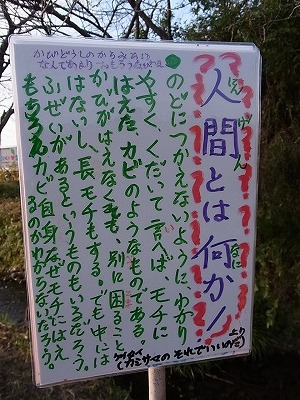 かびどうしのからみあい
なんてかより……もううたがわ
???????????
人間とは何か!!
にんげん なに
???????????
●のどにつかえないように、わかり
やすく、くだいて言へば、モチに
はえた、カビのようなものである。
かびがはえなくても、別に困ること
はないし、長モチもする。でも中には
ふぜいがあるというものもいるだろう。
もちろんカビ自身なぜモチにはえ
るのかわからないだろう。
より
(カミサマの それでいいのだ)